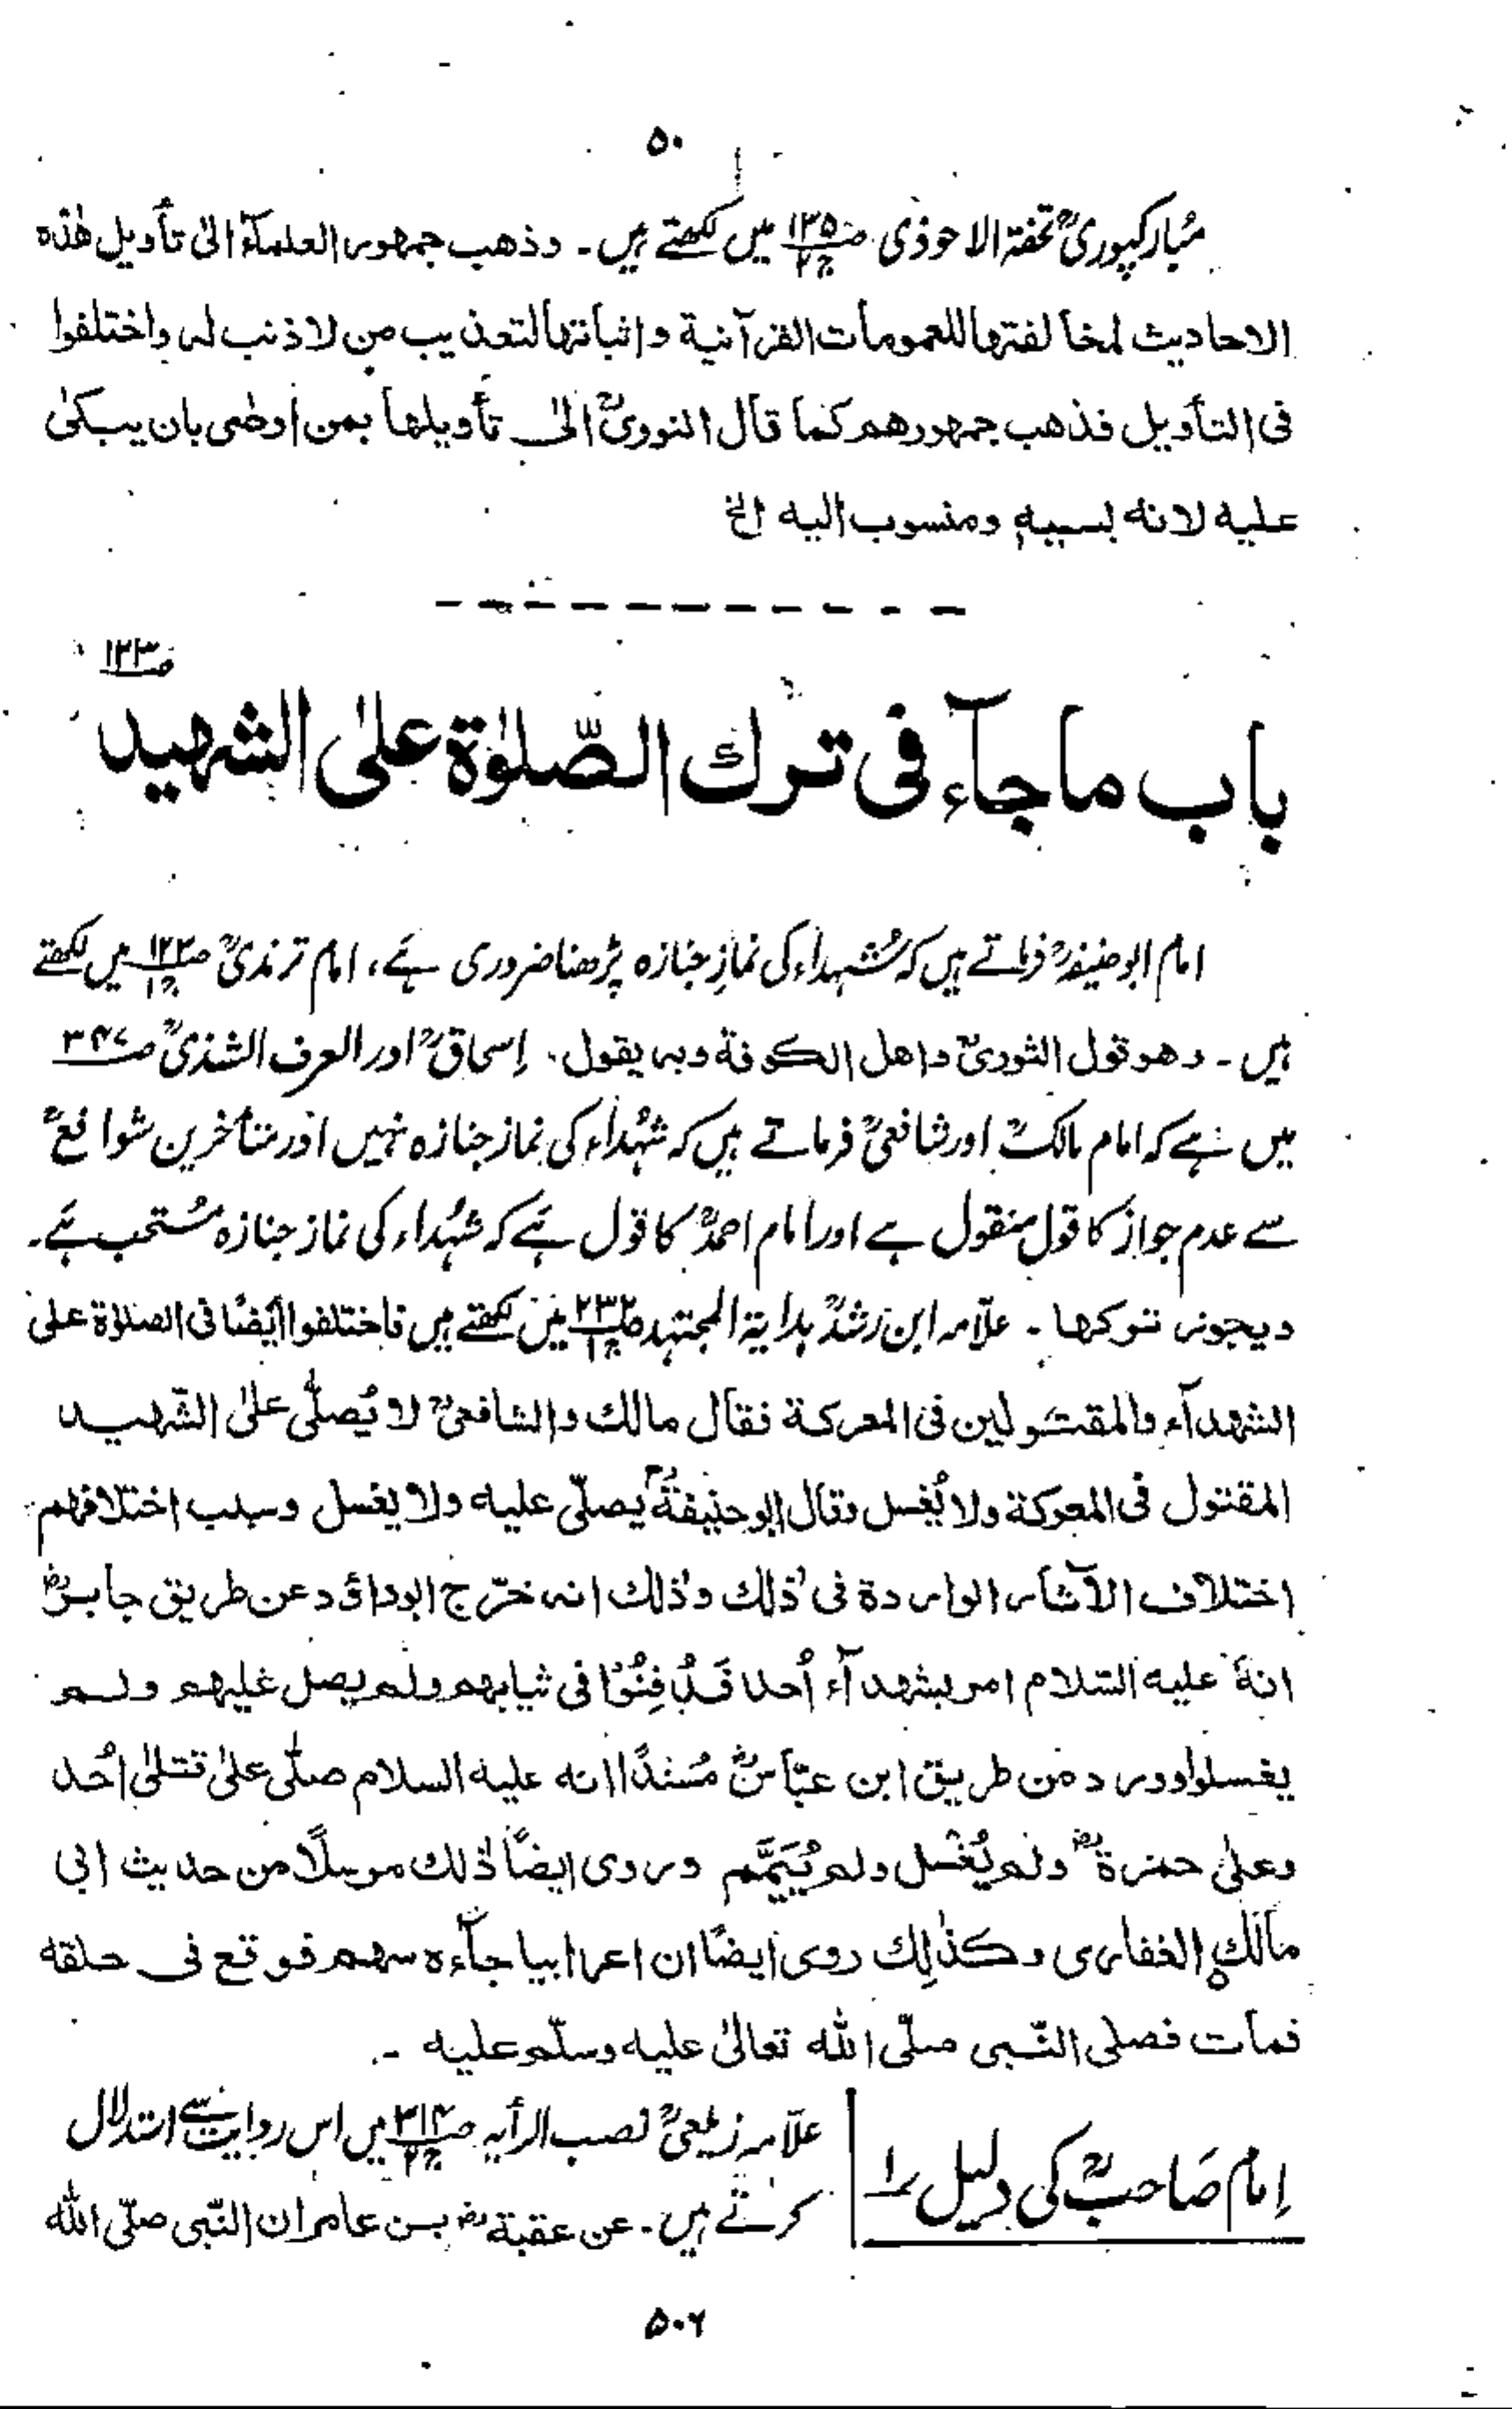 ۵۰
مُبارکپوریؒ تحفۃ الاحوذی ص۱۲۵ ج۲ میں لکھتے ہیں۔ وذهب جمهور العلمآء الیٰ تأویل هٰذه
الاحادیث لمخالفتها للعمومات القرآنیة واثباتها لتعذیب من لا ذنب له واختلفوا
فی التأویل فذهب جمهورهم کما قال النوویؒ الیٰ تأویلها بمن اوصٰی بان یبکیٰ
علیه لانه بسببهٖ ومنسوب الیه الخ
ص۱۲۳
باب ما جآء فی ترك الصّلوٰة علیٰ الشهید
امام ابو حنیفہؒ فرماتے ہیں کہ شہداء کی نمازِ جنازہ پڑھنا ضروری ہے، امام ترمذیؒ ص۱۲۳ ج۱ میں لکھتے
ہیں۔ وهو قول الثوریؒ واهل الکوفة وبه یقول، إسحاقؒ اور العرف الشذیؒ ص۳۴۷
میں ہے کہ امام مالکؒ اور شافعیؒ فرماتے ہیں کہ شہُداء کی نماز جنازہ نہیں اور متأخرین شوافعؒ
سے عدم جواز کا قول منقول ہے اور امام احمدؒ کا قول ہے کہ شہُداء کی نماز جنازہ مُستحب ہے۔
ویجوز ترکها ۔ علّامہ ابن رُشدؒ بدایة المجتہد ص۲۳۲ ج۱ میں لکھتے ہیں فاختلفوا ایضًا فی الصلوٰة علیٰ
الشهدآء والمقتولین فی المعرکة فقال مالك والشافعیؒ لا یُصلّٰی علیٰ الشّهید
المقتول فی المعرکة ولا یُغسل وقال ابو حنیفةؒ یصلّٰی علیه ولا یغسل وسبب اختلافهم
اختلاف الآثار الواردة فی ذٰلك وذٰلك انه خرّج ابو داؤد عن طریق جابرؓ
انهٗ علیه السّلام امر بشهدآء اُحد فَدُفِنُوْا فی ثیابهم ولم یصل علیهم ولم
یغسلوا وورد من طریق ابن عبّاسؓ مُسندًا انه علیه السلام صلّٰی علیٰ قتلیٰ اُحد
وعلیٰ حمزةؓ ولم یُغسل ولم یُیَمَّم وروی ایضًا ذٰلك مرسلًا من حدیث ابی
مالكٍ الغفاری وکذٰلِك روی ایضًا ان اعرابیا جآءه سهم فوقع فی حلقه
فمات فصلی النّبی صلّی الله تعالیٰ علیه وسلّم علیه ۔
اِمام صَاحبؒ کی دلیل ۱
علّامہ زیلعیؒ نصب الرأیہ ص۳۱۴ ج۲ میں اس روایت سے استدلال
کرتے ہیں۔ عن عقبةؓ بن عامر ان النّبی صلّی الله
۵۰۶